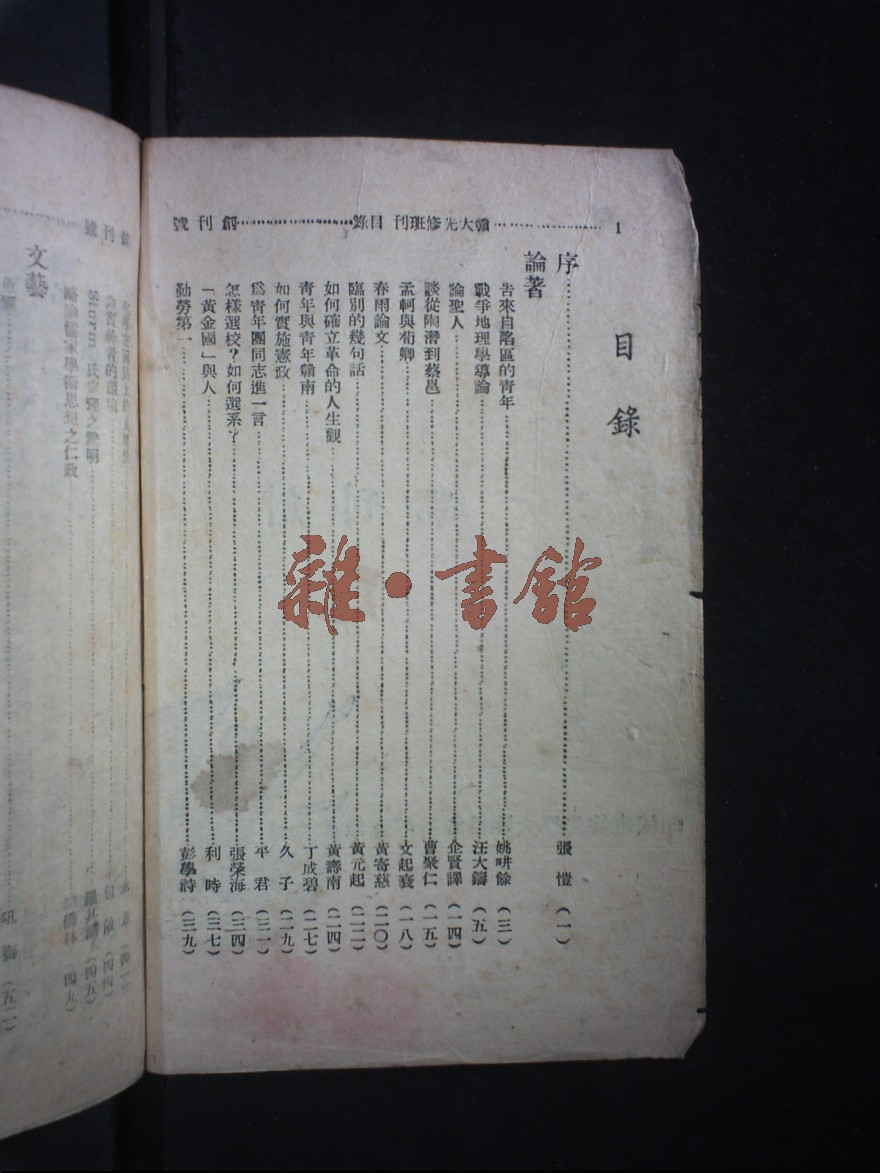 1 贛大先修班刊 目錄 創刊號
目錄
序 張愷 (一)
論著
告來自陷區的青年 姚畊餘 (三)
戰爭地理學導論 汪大鑄 (五)
論聖人 企賢譯 (一四)
談從陶潛到蔡邕 曹聚仁 (一五)
孟軻與荀卿 文起衰 (一八)
春雨論文 黃寄慈 (二〇)
臨別的幾句話 黃元起 (二二)
如何確立革命的人生觀 黃壽南 (二四)
青年與青年贛南 丁成碧 (二七)
如何實施憲政 久子 (二九)
爲青年團同志進一言 平君 (三一)
怎樣選校?如何選系? 張榮海 (三四)
「黃金國」與人 利時 (三七)
勤勞第一 彭學詩 (三九)
刊號
(四四)
(四五)
略論儒家學術思想之仁政 儒林 (四九)
文藝
(五二)
雜·書館